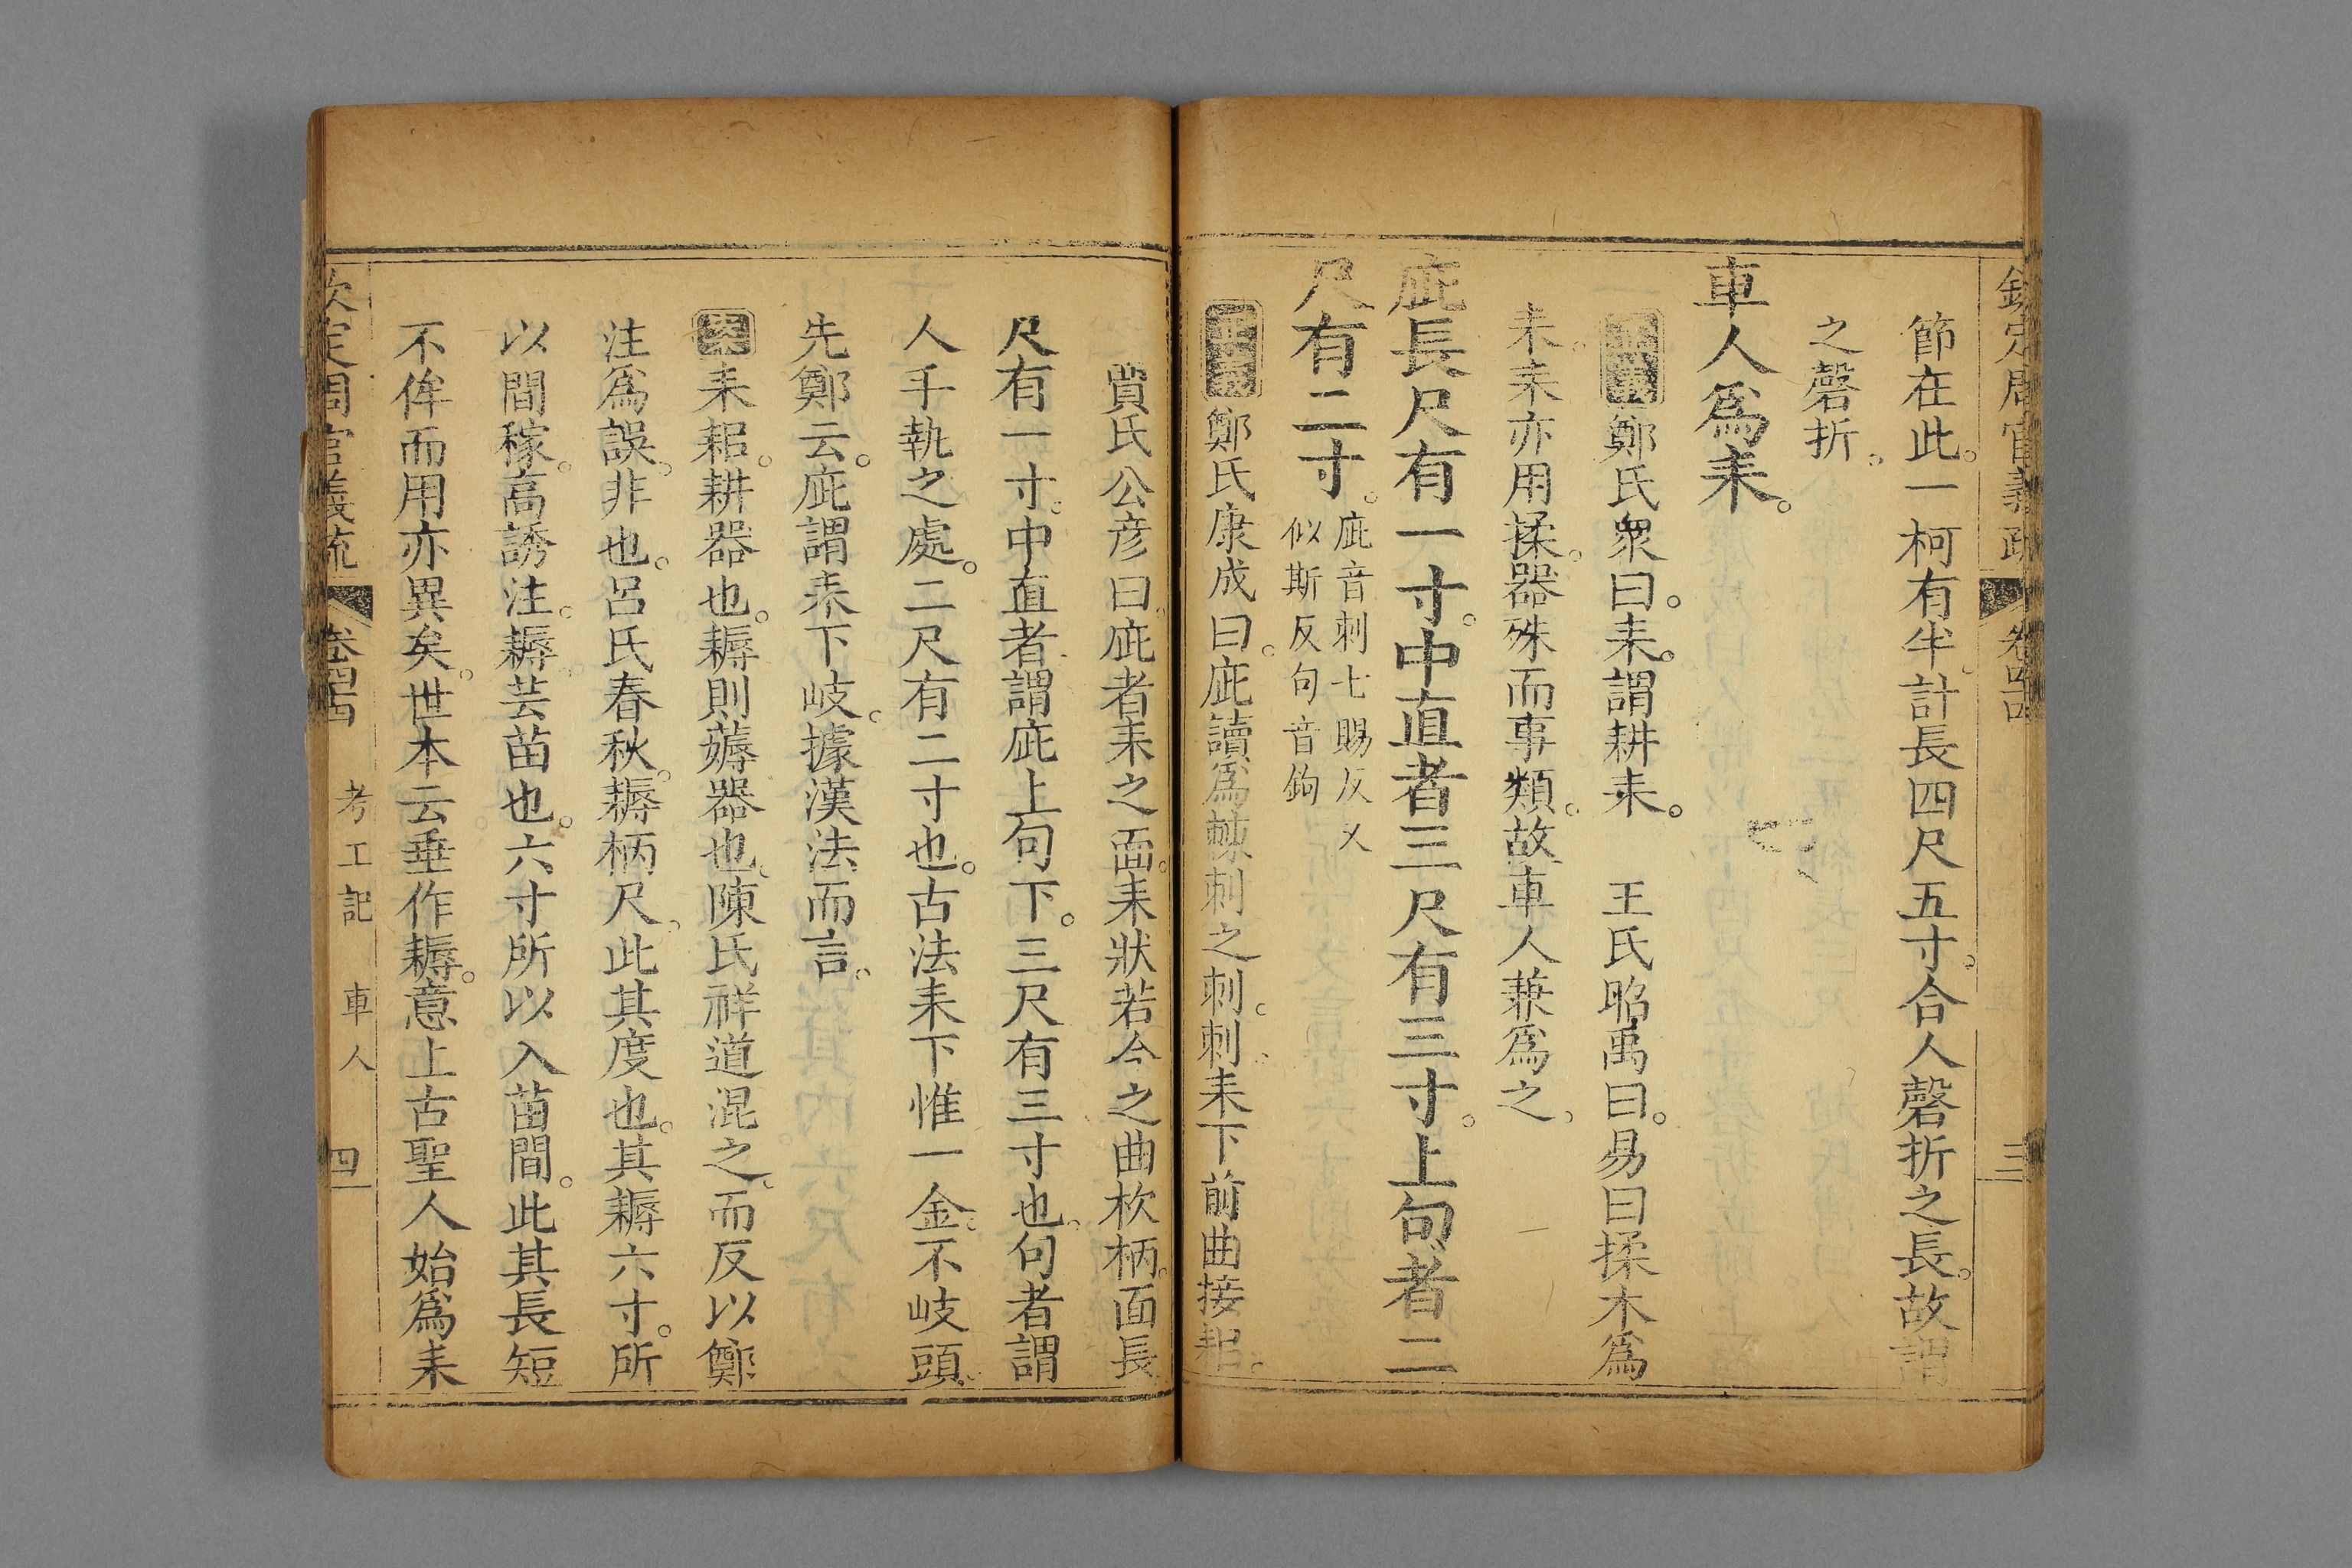 欽定周官義疏 卷四十四 三
節在此。一柯有半。計長四尺五寸。合人磬折之長。故謂
之磬折。
車人爲耒。
正義鄭氏衆曰。耒。謂耕耒。 王氏昭禹曰。易曰揉木爲
耒。耒亦用揉。器殊而事類。故車人兼爲之。
庛長尺有一寸。中直者三尺有三寸。上句者二
尺有二寸。庛音刺七賜反又
似斯反句音鉤
正義鄭氏康成曰。庛讀爲棘刺之刺。刺。耒下前曲接耜。
賈氏公彦曰。庛者耒之面。耒狀若今之曲枚柄。面長
尺有一寸。中直者謂庛上句下。三尺有三寸也。句者謂
人手執之處。二尺有二寸也。古法耒下惟一金。不岐頭。
先鄭云。庛謂耒下岐。據漢法而言。
案耒耜。耕器也。耨則薅器也。陳氏祥道混之。而反以鄭
注爲誤。非也。呂氏春秋。耨柄尺。此其度也。其耨六寸。所
以間稼。高誘注。耨。芸苗也。六寸所以入苗間。此其長短
不侔而用亦異矣。世本云垂作耨。意上古聖人始爲耒
欽定周官義疏 卷四十四 考工記 車人 四